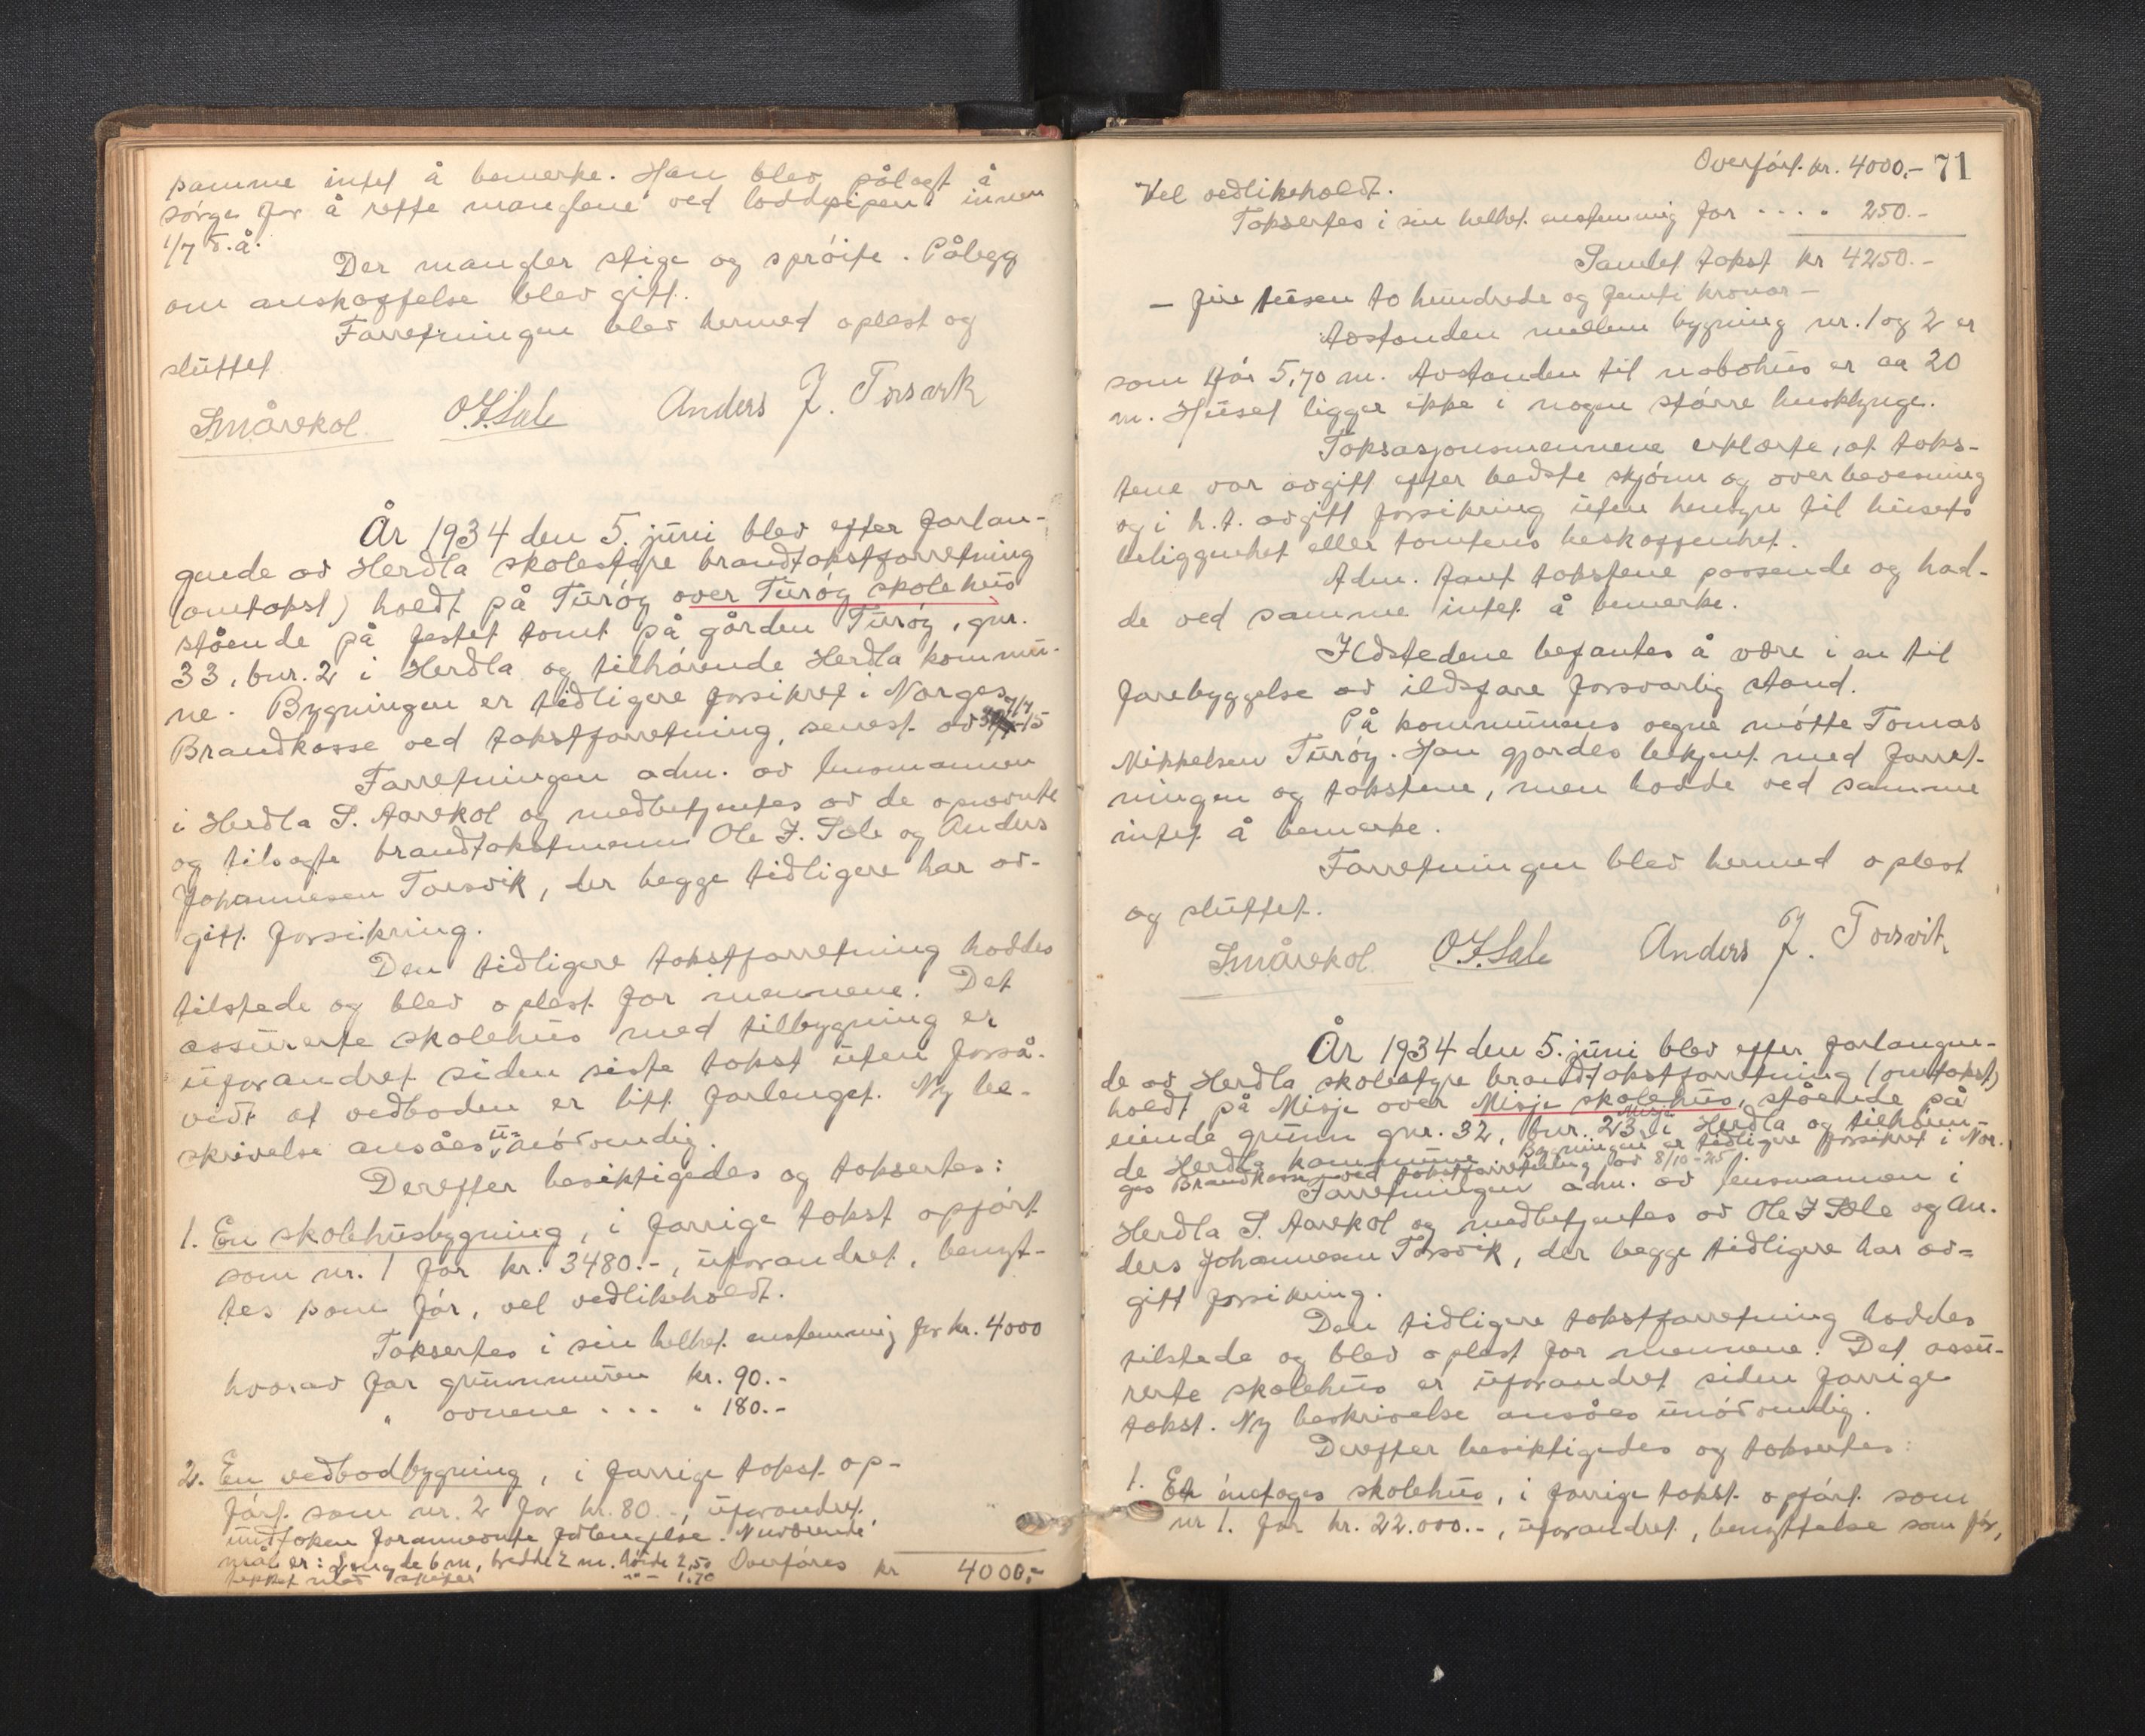 samme intet å bemerke. Han blev pålagt å
sørge for å rette manglene ved loddpipen innen
1/7 d.å.
Der mangler stige og sprøite. Pålegg
om anskaffelse blev gitt.
Forretningen blev hermed oplest og
sluttet
SmÅrekol O.J.Sæle Anders J. Torsvik
År 1934 den 5. juni blev efter forlan-
gende av Herdla skolestyre brandtakstforretning
(omtakst) holdt på Turøy over Turøy skolehus
stående på festet tomt på gården Turøy, gnr.
33, bnr. 2 i Herdla og tilhørende Herdla kommu-
ne. Bygningen er tidligere forsikret i Norges
Brandkasse ved takstforretning, senest av 7/7-15
Forretningen adm. av lensmannen
i Herdla S. Aarekol og medbetjentes av de opnevnte
og tilsagte brandtakstmenn Ole J. Sæle og Anders
Johannesen Torsvik, der begge tidligere har av-
gitt forsikring.
Den tidligere takstforretning haddes
tilstede og blev oplest for mennene. Det
assurerte skolehus med tilbygning er
uforandret siden siste takst uten forså-
vidt at vedboden er litt forlenget. Ny be-
skrivelse ansåes unødvendig.
Derefter besiktigedes og taksertes:
1. En skolehusbygning, i forrige takst opført
som nr. 1 for kr. 3480.-, uforandret, benyt-
tes som før, vel vedlikeholdt.
Taksertes i sin helhet enstemmig for kr. 4000
hvorav for grunnmuren kr. 90.-
" ovnene ... " 180.-
2. En vedbodbygning, i forrige takst op-
ført som nr. 2 for kr. 80.-, uforandret,
undtaken forannevnte forlengelse. Nuværende
mål er: Lengde 6 m, bredde 2 m. høide 2,50 Overføres kr 4000,-
tekket med skifer -"- 1,70
Overført kr. 4000,- 71
Vel vedlikeholdt.
Taksertes i sin helhet enstemmig for .... 250.-
Samlet takst kr 4250.-
- fire tusen to hundrede og femti kroner -
Avstanden mellem bygning nr. 1 og 2 er
som før 5,70 m. Avstanden til nabohus er ca 20
m. Huset ligger ikke i nogen større husklynge.
Taksasjonsmennene erklærte, at taks-
tene var avgitt efter bedste skjønn og overbevisning
og i h.t. avgitt forsikring uten hensyn til husets
beliggenhet eller tomtens beskaffenhet.
Adm. fant takstene passende og had-
de ved samme intet å bemerke.
Ildstedene befantes å være i en til
forebyggelse av ildsfare forsvarlig stand.
På kommunens vegne møtte Tomas
Mikkelsen Turøy. Han gjordes bekjent med forret-
ningen og takstene, men hadde ved samme
intet å bemerke.
Forretningen blev hermed oplest
og sluttet.
SmÅrekol O.J.Sæle Anders J. Torsvik
År 1934 den 5. juni blev efter forlangen-
de av Herdla skolestyre brandtakstforretning (omtakst)
holdt på Misje over Misje skolehus, stående på
eiende grunn gnr. 32, bnr. 23 Misje i Herdla og tilhøren-
de Herdla kommune. Bygningen er tidligere forsikret i Nor-
ges Brandkasse ved takstforretning av 8/10-25.
Forretningen adm. av lensmannen i
Herdla S. Aarekol og medbetjentes av Ole J Sæle og An-
ders Johannesen Torsvik, der begge tidligere har av-
gitt forsikring.
Den tidligere takstforretning haddes
tilstede og blev oplest for mennene. Det assu-
rerte skolehus er uforandret siden forrige
takst. Ny beskrivelse ansåes unødvendig.
Derefter besiktigedes og taksertes:
1. Et enetages skolehus, i forrige takst opført som
nr 1. for kr. 22.000.-, uforandret, benyttelse som før,